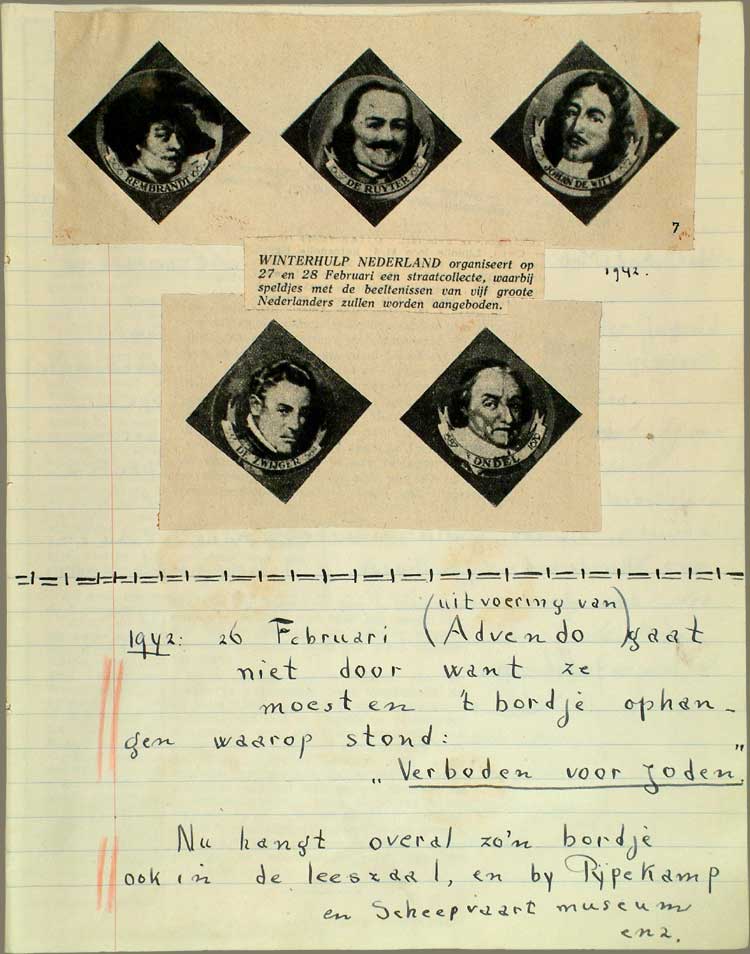 REMBRANDT
DE RUYTER
JOHAN DE WITT
7
WINTERHULP NEDERLAND organiseert op
27 en 28 Februari een straatcollecte, waarbij
speldjes met de beeltenissen van vijf groote
Nederlanders zullen worden aangeboden.
1942.
DE ZWIJGER
ONDEL
(uitvoering van)
1942: 26 Februari Advendo gaat
niet door want ze
moesten 't bordje ophan-
gen waarop stond:
„Verboden voor Joden."
Nu hangt overal zo'n bordje
ook in de leeszaal, en by Rypekamp
en Scheepvaart museum
enz.